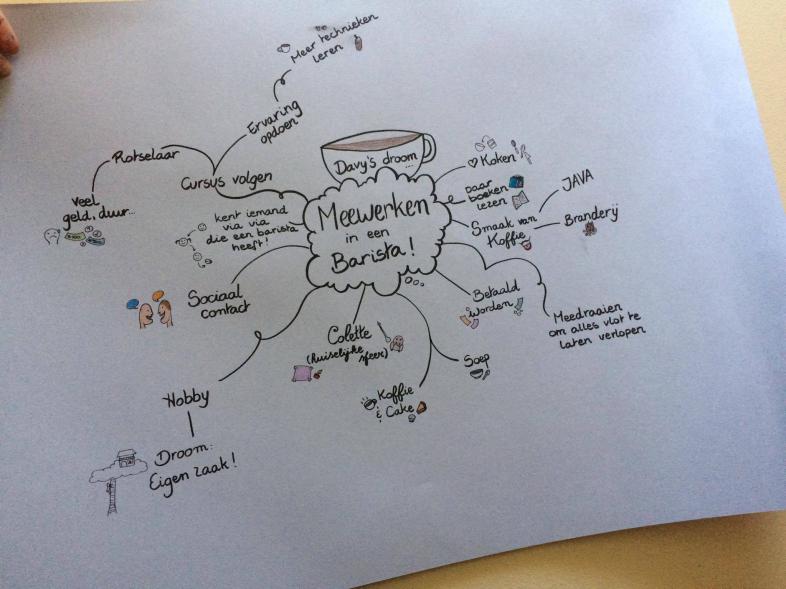 Meer technieken
leren
Ervaring
opdoen
Rotselaar
Cursus volgen
Veel
geld, duur...
kent iemand
via via
die een barista
heeft!
Sociaal
contact
Davy's droom...
Meewerken
in een
Barista!
Koken
Daar
boeken
lezen
Smaak van
Koffie
JAVA
Branderij
Betaald
worden
Meedraaien
om alles vlot te
laten verlopen
Soep
Colette
(Huiselijke sfeer)
Koffie
& Cake
Hobby
Droom:
Eigen zaak!